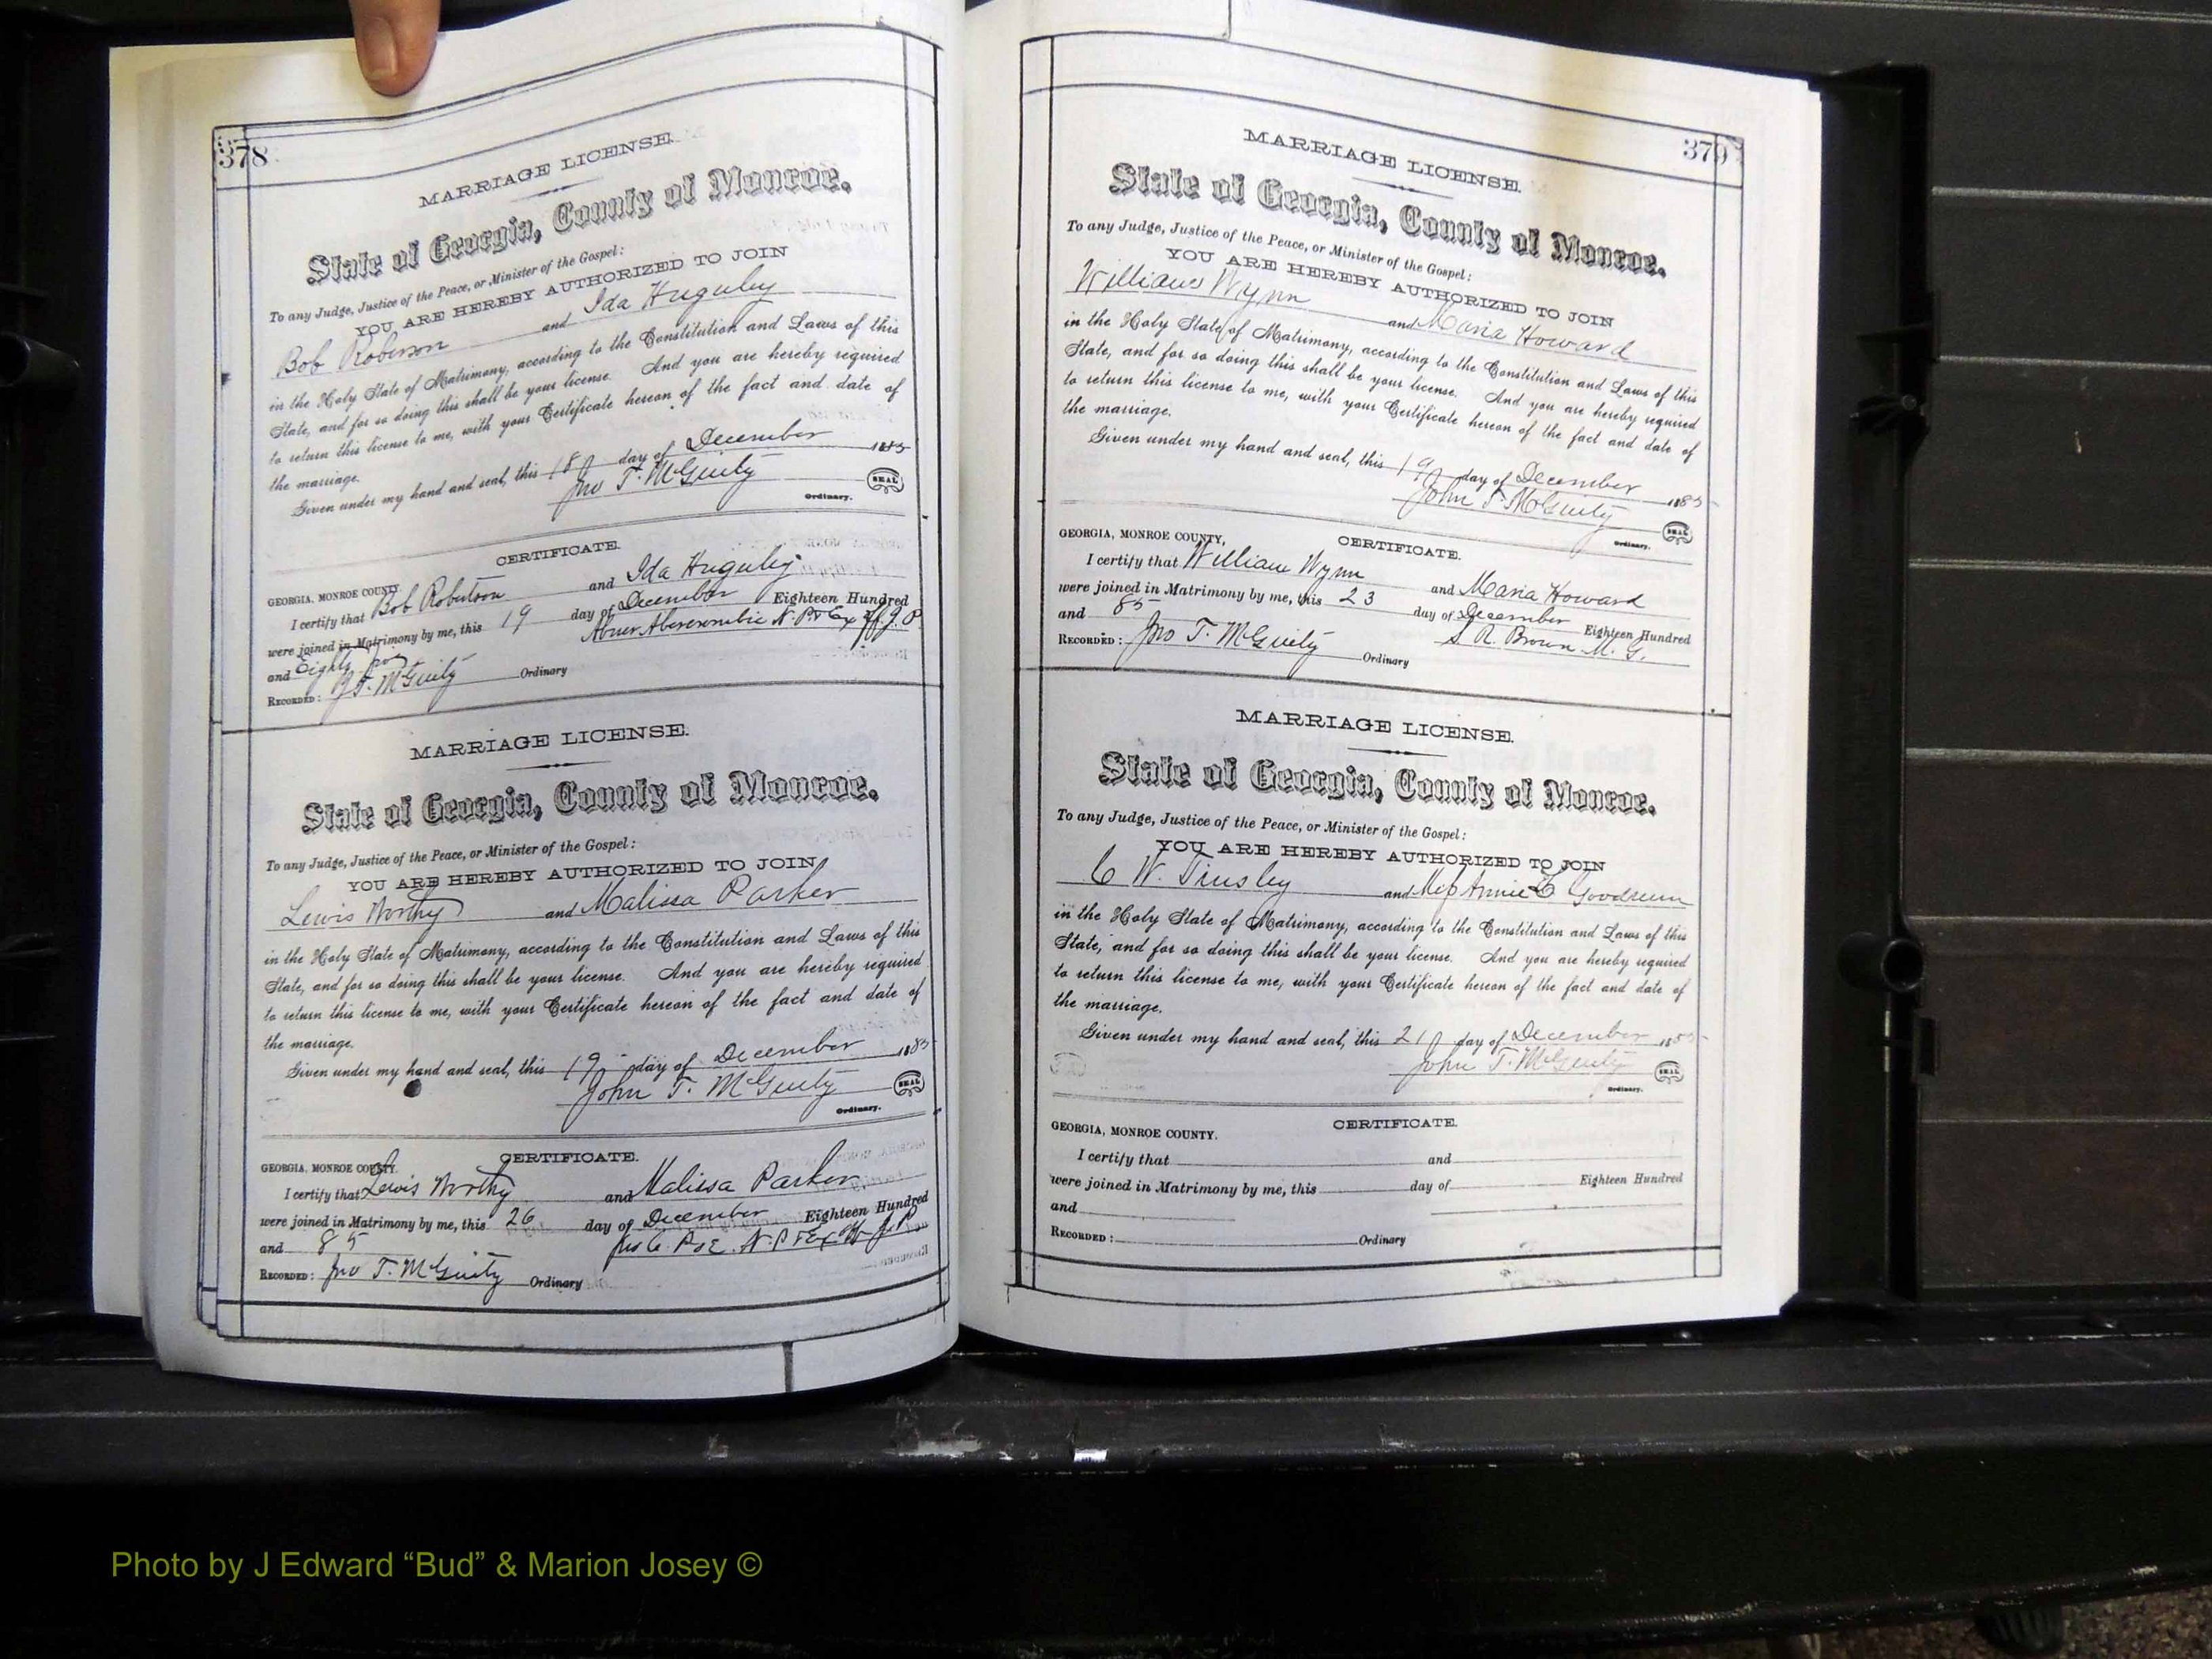 378
MARRIAGE LICENSE.
State of Georgia, County of Monroe.
To any Judge, Justice of the Peace, or Minister of the Gospel:
YOU ARE HEREBY AUTHORIZED TO JOIN
Bob Roberson and Ida Huguley
in the Holy State of Matrimony, according to the Constitution and Laws of this
State, and for so doing this shall be your license. And you are hereby required
to return this license to me, with your Certificate hereon of the fact and date of
the marriage.
Given under my hand and seal, this 18 day of December 1885
Jno T. McGinty
SEAL
Ordinary.
CERTIFICATE.
GEORGIA, MONROE COUNTY.
I certify that Bob Robertson and Ida Huguley
were joined in Matrimony by me, this 19 day of December Eighteen Hundred
and Eighty five Abner Abercrombie N.P. & Ex off J.P.
RECORDED: J.T. McGinty Ordinary
MARRIAGE LICENSE.
State of Georgia, County of Monroe.
To any Judge, Justice of the Peace, or Minister of the Gospel:
YOU ARE HEREBY AUTHORIZED TO JOIN
Lewis Worthy and Malissa Parker
in the Holy State of Matrimony, according to the Constitution and Laws of this
State, and for so doing this shall be your license. And you are hereby required
to return this license to me, with your Certificate hereon of the fact and date of
the marriage.
Given under my hand and seal, this 19 day of December 1885
John T. McGinty
SEAL
Ordinary.
CERTIFICATE.
GEORGIA, MONROE COUNTY.
I certify that Lewis Worthy and Malissa Parker
were joined in Matrimony by me, this 26 day of December Eighteen Hundred
and 85 Poe. N.P & Ex off J.P.
RECORDED: Jno T. McGinty Ordinary
379
MARRIAGE LICENSE.
State of Georgia, County of Monroe.
To any Judge, Justice of the Peace, or Minister of the Gospel:
YOU ARE HEREBY AUTHORIZED TO JOIN
William Wynn and Maria Howard
in the Holy State of Matrimony, according to the Constitution and Laws of this
State, and for so doing this shall be your license. And you are hereby required
to return this license to me, with your Certificate hereon of the fact and date of
the marriage.
Given under my hand and seal, this 19 day of December 1885
John T. McGinty
SEAL
Ordinary.
CERTIFICATE.
GEORGIA, MONROE COUNTY,
I certify that William Wynn and Maria Howard
were joined in Matrimony by me, this 23 day of December Eighteen Hundred
and 85 S. R. Brown M. G.
RECORDED: Jno T. McGinty Ordinary
MARRIAGE LICENSE.
State of Georgia, County of Monroe.
To any Judge, Justice of the Peace, or Minister of the Gospel:
YOU ARE HEREBY AUTHORIZED TO JOIN
C W. Tinsley and Miss Annie Goodrum
in the Holy State of Matrimony, according to the Constitution and Laws of this
State, and for so doing this shall be your license. And you are hereby required
to return this license to me, with your Certificate hereon of the fact and date of
the marriage.
Given under my hand and seal, this 21 day of December 1885
John T. McGinty
SEAL
Ordinary.
CERTIFICATE.
GEORGIA, MONROE COUNTY.
I certify that and
were joined in Matrimony by me, this day of Eighteen Hundred
and
RECORDED: Ordinary
Photo by J Edward “Bud” & Marion Josey ©